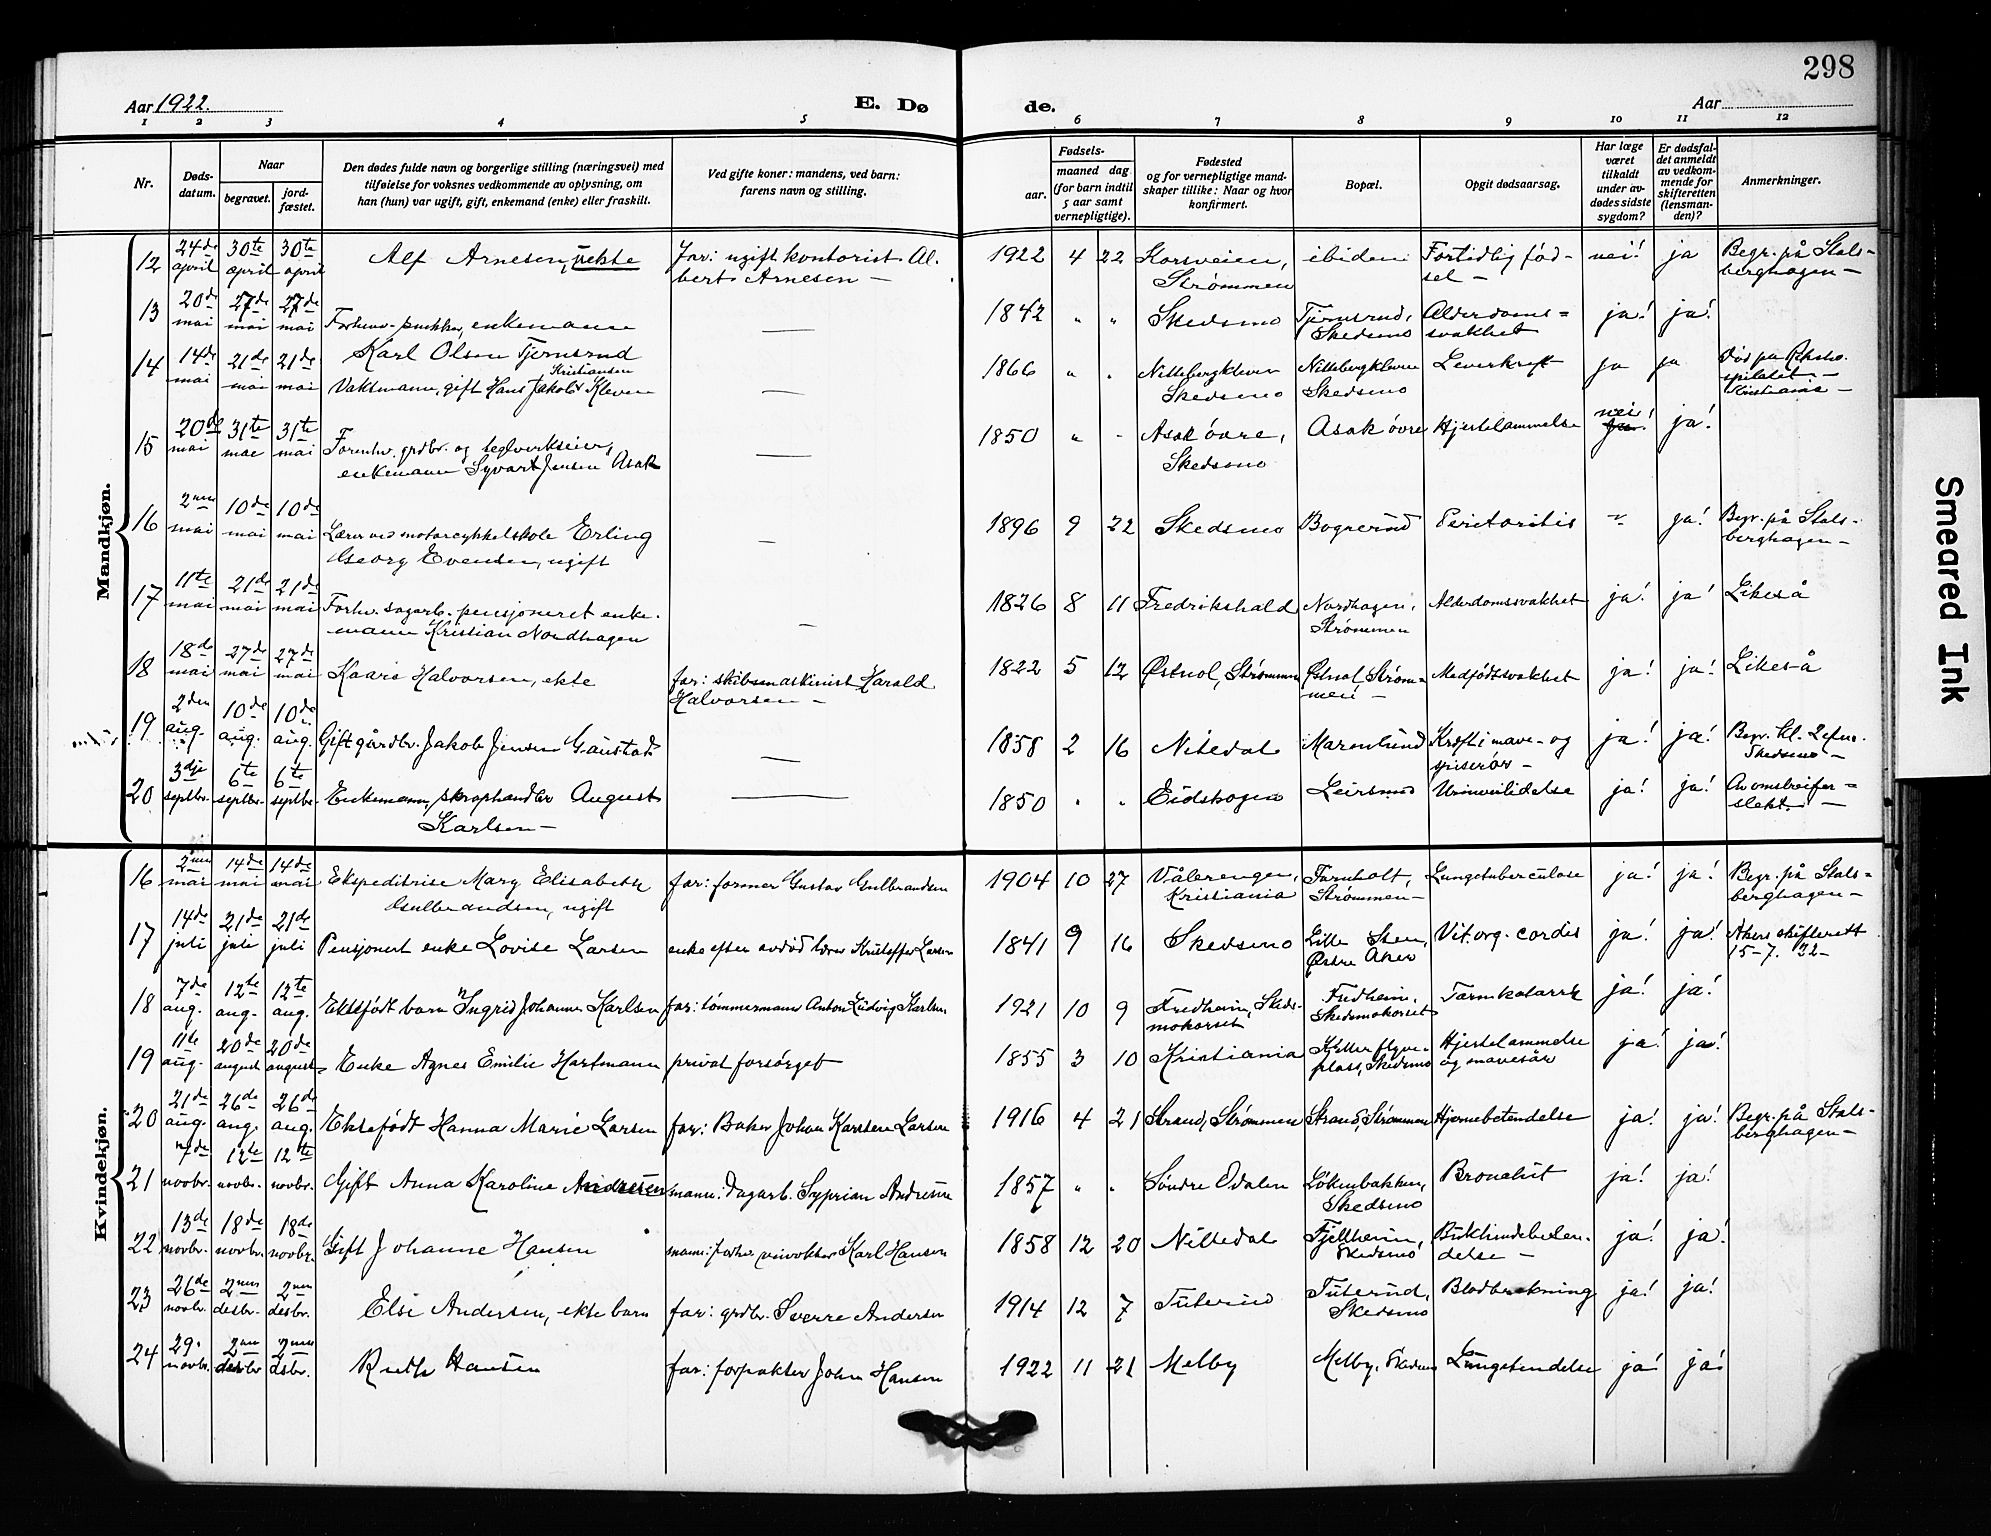 298
Aar 1922.
E. Dø
de.
Aar
1 2 3 4 5 6 7 8 9 10 11 12
Nr.
Døds-
datum.
Naar
begravet.
jord-
fæstet.
Den dødes fulde navn og borgerlige stilling (næringsvei) med
tilføielse for voksnes vedkommende av oplysning, om
han (hun) var ugift, gift, enkemand (enke) eller fraskilt.
Ved gifte koner: mandens, ved barn:
farens navn og stilling.
Fødsels-
aar.
maaned dag
(for barn indtil
5 aar samt
vernepligtige).
Fødested
og for vernepligtige mand-
skaper tillike: Naar og hvor
konfirmert.
Bopæl.
Opgit dødsaarsag.
Har læge
været
tilkaldt
under av-
dødes sidste
sygdom?
Er dødsfal-
det anmeldt
av vedkom-
mende for
skifteretten
(lensman-
den)?
Anmerkninger.
Mandkjøn.
12 24de april 30te april 30te april Alf Arnesen, uekte far: ugift kontorist Al-
bert Arnesen — 1922 4 22 Korsveien, Strømmen ibidem Fortidlig fød-
sel — nei! ja Begr. på Stals-
berghagen —
13 20de mai 27de mai 27de mai Forhenv. pukker, enkemann
Karl Olsen Tjernsrud — 1842 " " Skedsmo Tjernsrud, Skedsmo Alderdoms=
svakhet ja! ja!
14 14de mai 21de mai 21de mai Vaktmann, gift Hans Jakob Kristiansen Kleven — 1866 " " Nittebergkleven Skedsmo Nittebergkleven Skedsmo Leverkreft ja ja Död på Riksho-
spitalet —
Kristiania —
15 20de mai 31te mai 31te mai Forenhv. grdbr. og teglverkseier,
enkemann Syvart Jensen Asak — 1850 " - Asak övre, Skedsmo Asak övre Hjertelammelse nei! ja!
16 2nen mai 10de mai 10de mai Lærer ved motorcykkelskole Erling
Georg Evensen, ugift — 1896 9 22 Skedsmo Bogrerud Peritoritis " ja! Begr. på Stals-
berghagen —
17 11te mai 21de mai 21de mai Forhv. sagarb. pensjoneret enke-
mann Kristian Nordhagen — 1826 8 11 Fredrikshald Nordhagen, Strømmen Alderdomssvakhet ja! ja! Likeså
18 18de mai 27de mai 27de mai Kaare Halvorsen, ekte far: skibsmaskinist Harald
Halvorsen — 1822 5 12 Østvol, Strømmen Østvol, Strøm-
men — Medfödt svakhet ja! ja! Likeså
19 2den aug. 10de aug. 10de aug. Gift gårdbr. Jakob Jensen Gaustad — 1858 2 16 Nitedal Marenlund Kreft i mave- og
spiserör — ja! ja! Begr. kl. 2 efm.
Skedsmo —
20 3dje septbr. 6te septbr. 6te septbr. Enkemann, skraphandler August
Karlsen — 1850 " " Eidskogen Leirsund Urinveislidelse ja! ja! Av omstreifer=
slekt. —
Kvindekjøn.
16 2nen mai 14de mai 14de mai Ekspeditrise Mary Elisabeth
Gulbrandsen, ugift far: former Gustav Gulbrandsen 1904 10 27 Vålerengen, Kristiania Furuholt, Strømmen — Lungetuberculose ja! ja! Begr. på Stals=
berghagen —
17 14de juli 21de juli 21de juli Pensjonert enke Lovise Larsen enke efter avdöd lærer Kristoffer Larsen 1841 9 16 Skedsmo Lille Sten, Østre Aker Vit. org. cordis ja! ja! Akers skifterett
15–7. 22 –
18 7de aug. 12te aug. 12te aug. Ektefödt barn Ingrid Johanne Karlsen far: tömmermann Anton Ludvig Karlsen 1921 10 9 Fredheim, Skeds-
mokorset Fredheim, Skedsmokorset Tarmkatarrh ja! ja!
19 11te aug. 20de august 20de august Enke Agnes Emilie Hartmann privat forsörget 1855 3 10 Kristiania Kjeller flyve-
plass, Skedsmo Hjertelammelse
og mavesår ja! ja!
20 21de aug. 26de aug. 26de aug. Ektefödt Hanna Marie Larsen far: Baker Johan Karsten Larsen 1916 4 21 Strand, Strømmen Strand, Strømmen Hjernebetendelse ja! ja! Begr. på Stals-
berghagen —
21 7de novbr. 12te novbr. 12te novbr. Gift Anna Karoline Andresen mann: Dagarb. Syprian Andresen 1857 " " Søndre Odalen Lökenbakken, Skedsmo Bronchit ja! ja!
22 13de novbr. 18de novbr. 18de novbr. Gift Johanne Hansen mann: forhv. veivokter Karl Hansen 1858 12 20 Nittedal Fjellheim, Skedsmo Bukhindebeten-
delse — ja! ja!
23 26de novbr. 2nen desbr. 2nen desbr. Else Andersen, ekte barn far: grdbr. Sverre Andersen 1914 12 7 Tuterud Tuterud, Skedsmo Blodbrekning ja! ja!
24 29. novbr. 2nen desbr. 2nen dsbr. Ruth Hansen far: forpakter John Hansen 1922 11 21 Melby Melby, Skedsmo Lungetendelse ja! ja!
Smeared Ink